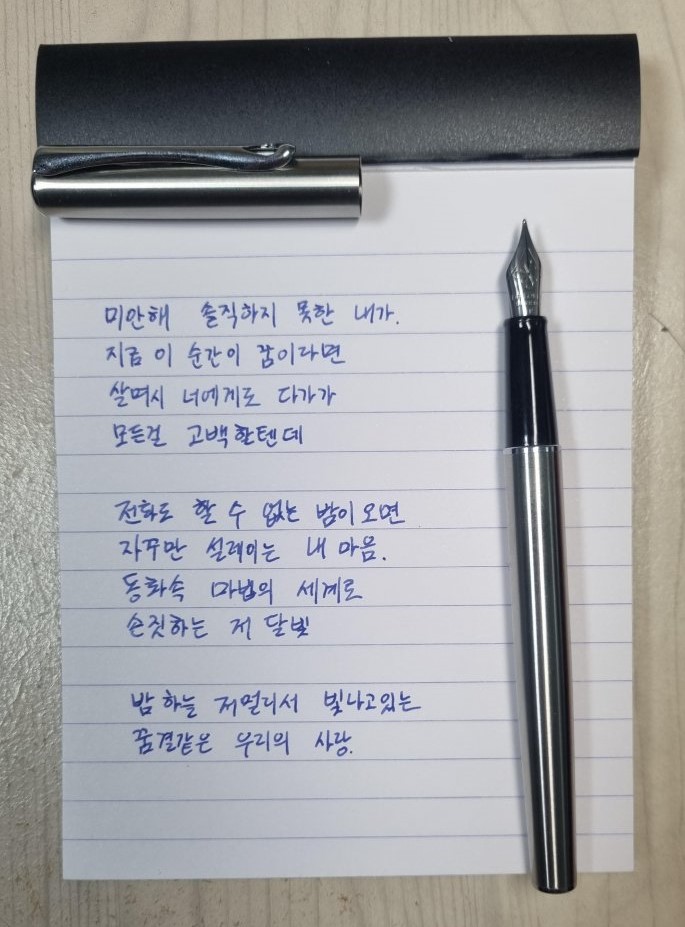 미안해 솔직하지 못한 내가.
지금 이 순간이 꿈이라면
살며시 너에게도 다가가
모든걸 고백할텐데
전화도 할 수 없는 밤이 오면
자꾸만 설레이는 내 마음.
동화속 마법의 세계로
손짓하는 저 달빛
밤 하늘 저멀리서 빛나고있는
꿈결같은 우리의 사랑.